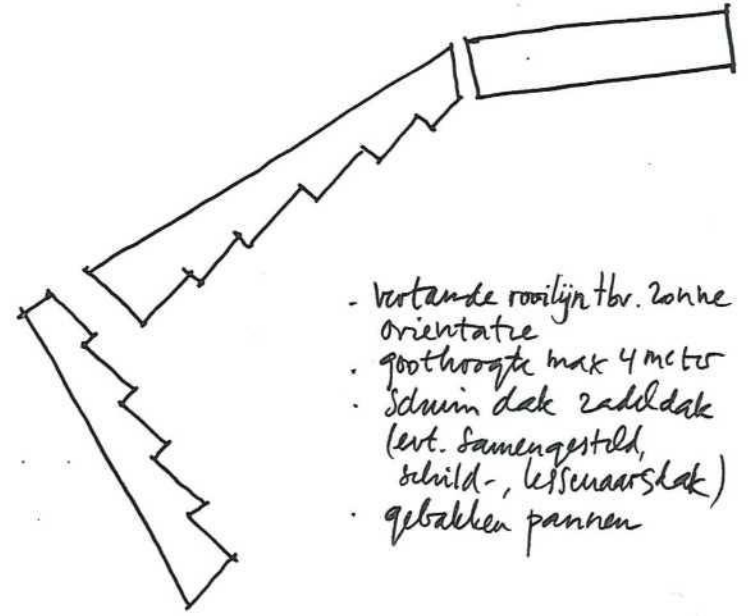 - vertande rooilijn tbv. zonne
orientatie
. goothoogte max 4 meter
. schuin dak zadeldak
(evt. samengesteld,
schild-, lessenaarsdak)
. gebakken pannen